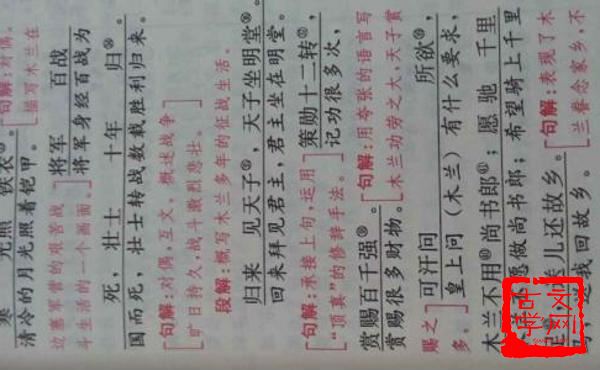 寒 光照 铁衣
清冷的月光照着铠甲。
[句解：对偶。
描写木兰在
边塞军营的艰苦战
斗生活的一个画面。]
将军 百战
将军身经百战为
死，壮士 十年 归㉟
国而死，壮士转战数载胜利归来。
[句解：对偶，互文。概述战争
旷日持久，战斗激烈悲壮。]
段解：概写木兰多年的征战生活。
归来 见天子㊱，天子坐明堂㊲。
回来拜见君主，君主坐在明堂。
[句解：承接上句，运用
“顶真”的修辞手法。]
策勋十二转㊳，
记功很多次，
赏赐百千强㊴。
赏赐很多财物。
[句解：用夸张的语言写
木兰功劳之大，天子赏
赐之
多。]
可汗问 所欲㊵，
皇上问（木兰）有什么要求，
木兰不用㊶尚书郎㊷；愿 驰 千里
愿做尚书郎；希望骑上千里
儿还故乡。
送我回故乡。
[句解：表现了木
兰眷念家乡，不